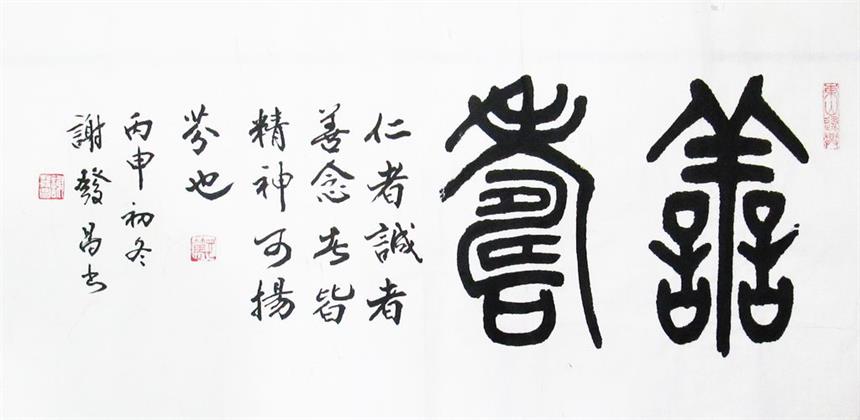 善壽
仁者誠者
善念者皆
精神可揚
芬也
丙申初冬
謝發昌書